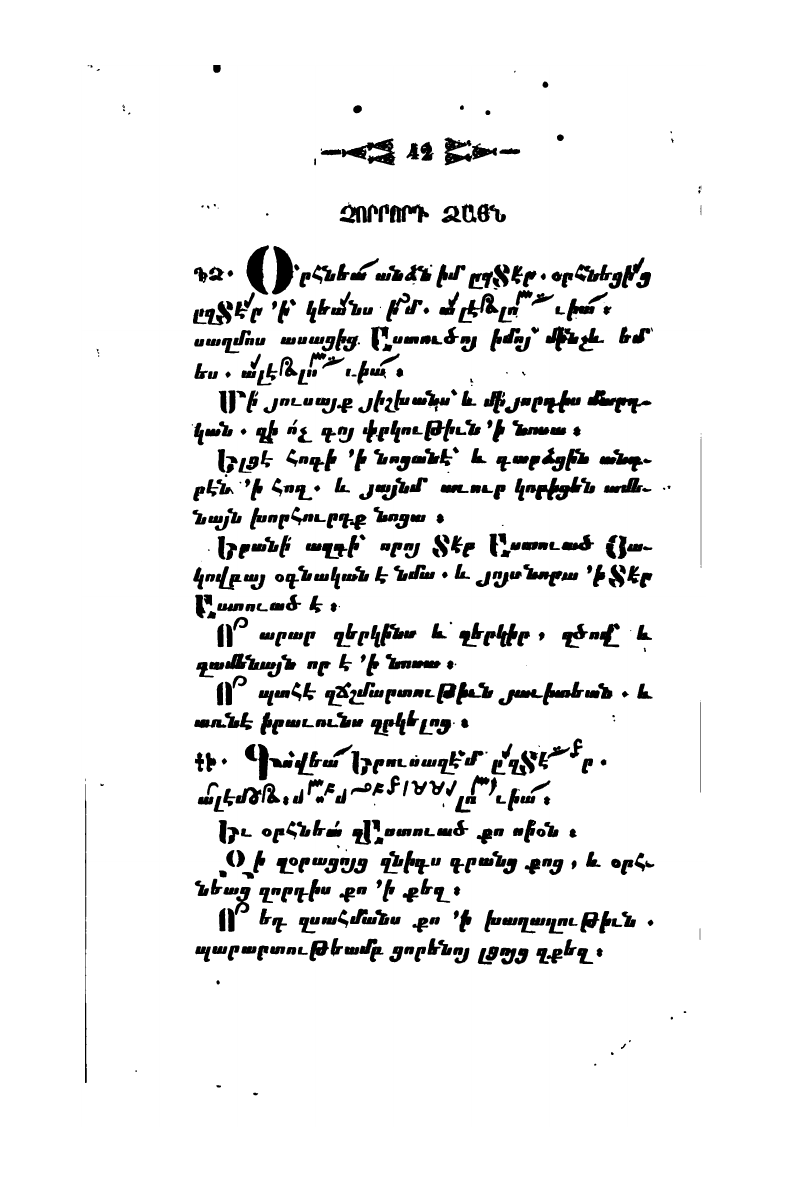 42
ՉՈՐՐՈՐԴ ՁԱՅՆ
ԴՁ. Օրհնեա՛ անձն իմ ըզՏէր. օրհնեցից
ըզՏէր ՚ի կեանս իմ. ալէլուիա։
սաղմոս ասացից Աստուծոյ իմոյ՝ մինչև եմ
ես. ալէլուիա։
Մի յուսայք յիշխանս՝ և մի յորդիս մարդ-
կան. զի ոչ գոյ փրկութիւն ՚ի նոսա։
Ելցէ հոգի ՚ի նոցանէ՝ և դարձցին անդ-
րէն ՚ի հող. և յայնմ աւուր կորիցեն ամե-
նայն խորհուրդք նոցա։
Երանի ազգի՝ որոյ Տէր Աստուած Յա-
կովբայ օգնական է նմա. և յոյս նորա ՚ի Տէր
Աստուած է։
Ո՛ արար զերկինս և զերկիր, զծով՝ և
զամենայն որ է ՚ի նոսա։
Ո՛ պահէ զճշմարտութիւն յաւիտեան. և
առնէ իրաւունս զրկելոց։
Գովեա՛ Երուսաղէմ ըզՏէր.
Եւ օրհնեա զԱստուած քո սիօն։
Զի զօրացոյց զնիգս դրանց քոց, և օրհ-
նեաց զորդիս քո ՚ի քեզ։
Ո՛ եդ զսահմանս քո ՚ի խաղաղութիւն.
պարարտութեամբ ցորենոյ լցոյց զքեզ։